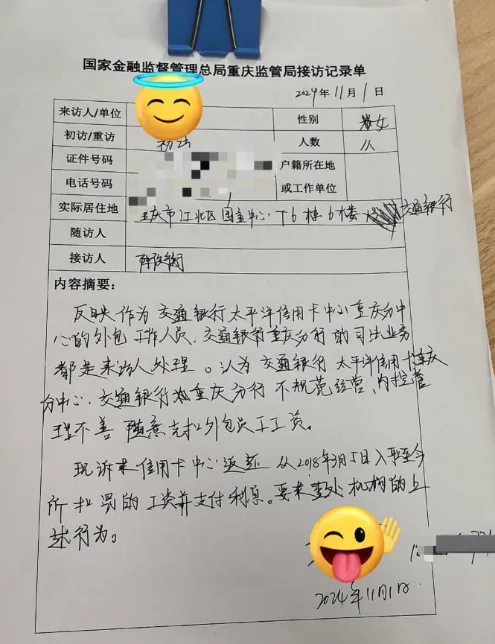 国家金融监督管理总局重庆监管局接访记录单
2024年11月1日
来访人/单位 性别 女
初访/重访 初访 人数 1人
证件号码 户籍所在地
电话号码 或工作单位
实际居住地 重庆市江北区国金中心T6栋6楼 交通银行
随访人
接访人
内容摘要:
反映作为交通银行太平洋信用卡中心重庆分中
心的外包工作人员,交通银行重庆分行的司法业务
都是来访人处理。认为交通银行太平洋信用卡重庆
分中心、交通银行重庆分行不规范经营,内控管
理不善 随意克扣外包员工工资。
现诉求信用卡中心返还从2018年3月5日入职至今
所扣罚的工资并支付利息。要求查处机构的上
述行为。
2024年11月1日